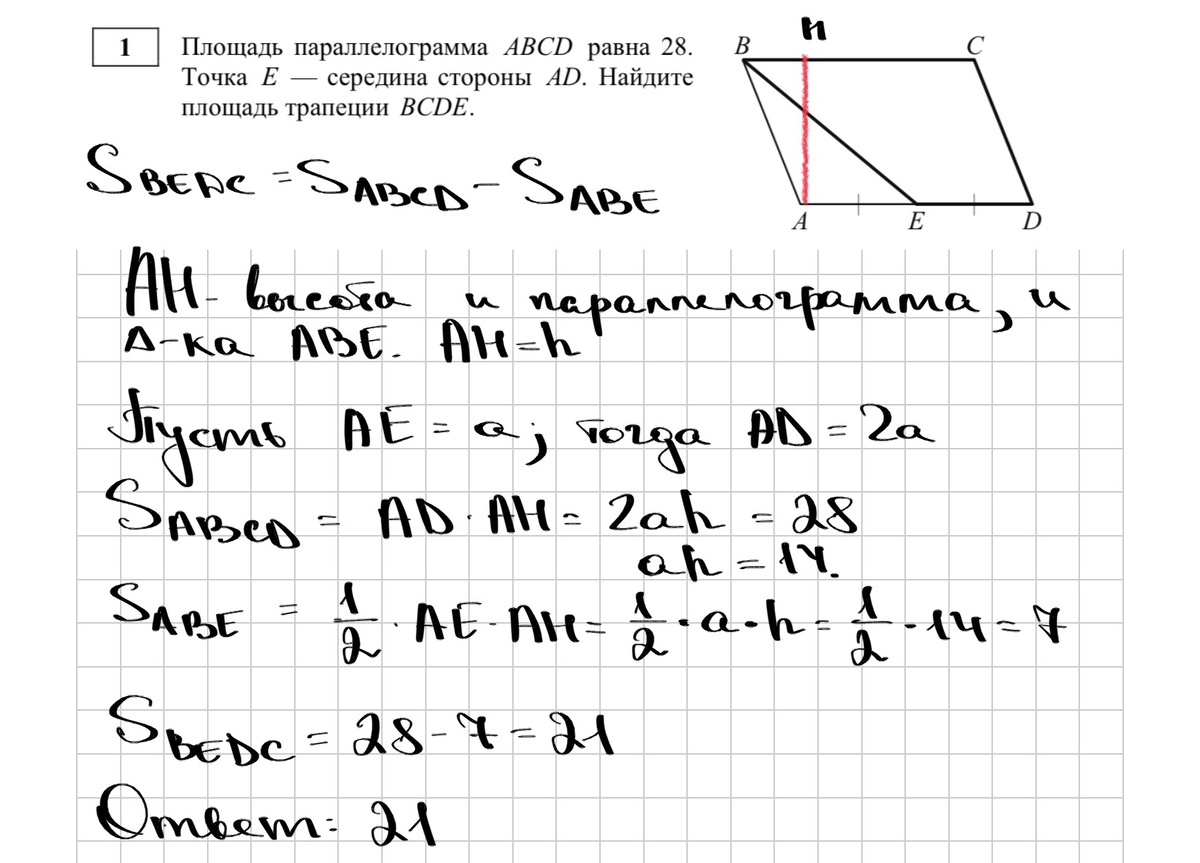 1
Площадь параллелограмма ABCD равна 28.
Точка E — середина стороны AD. Найдите
площадь трапеции BCDE.
B H C
A E D
S_BEDC = S_ABCD - S_ABE
AH - высота и параллелограмма, и
Δ-ка ABE. AH = h
Пусть AE = a; тогда AD = 2a
S_ABCD = AD · AH = 2ah = 28
ah = 14.
S_ABE = 1/2 · AE · AH = 1/2 · a · h = 1/2 · 14 = 7
S_BEDC = 28 - 7 = 21
Ответ: 21